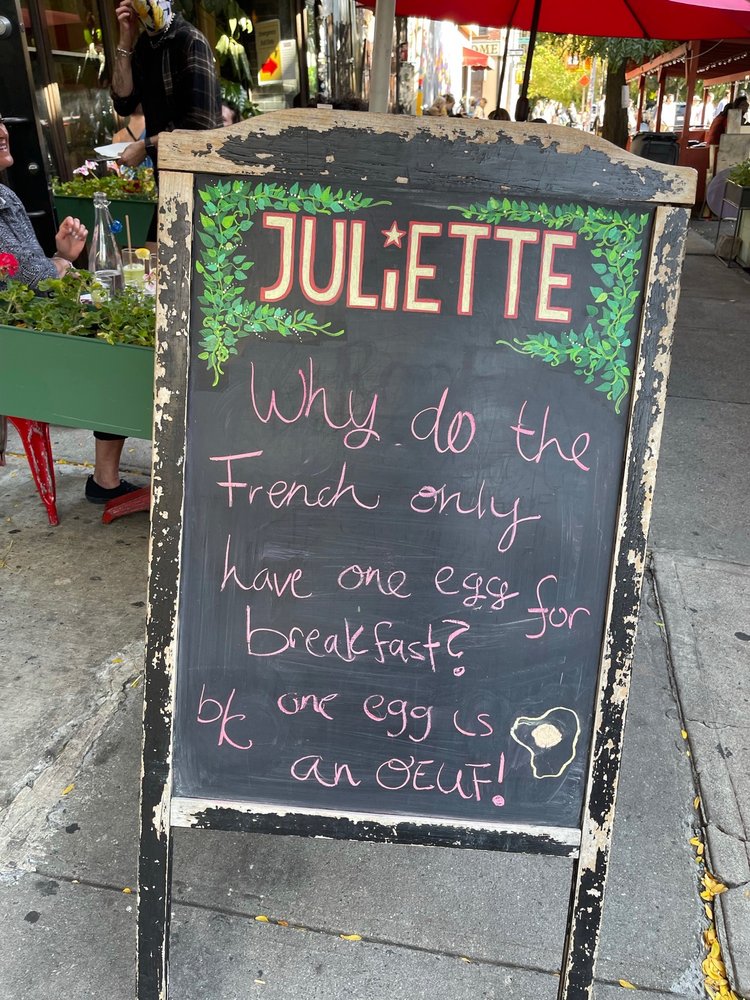 JULiETTE
Why do the
French only
have one egg for
breakfast?
bk one egg is
an OEUF!